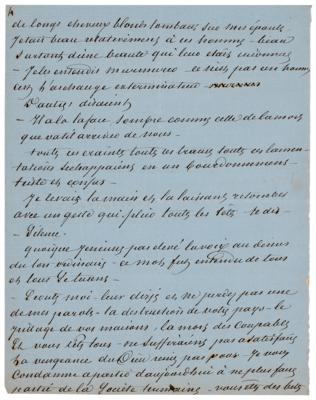 de longs cheveux blonds tombant sur mes épaules
J'étais beau relativement à ces hommes – beau
surtout d'une beauté qui leur était inconnue
– Je les entendis murmurer – ce n'est pas un homme
c'est l'archange exterminateur
D'autres disaient
– Il a la face sombre comme celle de la mort
que va-t-il arriver de nous –
toutes ces craintes toutes ces
échappaient en un bourdonnement
triste et confus –
Je levai la main et la laissant retomber
avec un geste qui plia toutes les têtes – je dis –
– Silence –
quoique je n'eusse pas élevé la voix au dessus
du ton ordinaire – ce mot fut entendu de tous
et tous se turent –
– Écoutez moi – leur dis-je et ne perdez pas une
de mes paroles – la destruction de votre pays – le
de vos maisons – la mort des coupables
Et vous l'êtes tous – ne suffiraient pas à satisfaire
La vengeance du Dieu – Je vous
Condamne à partir d'aujourd'hui à ne plus faire
partie de la Société humaine – vous êtes des bêtes